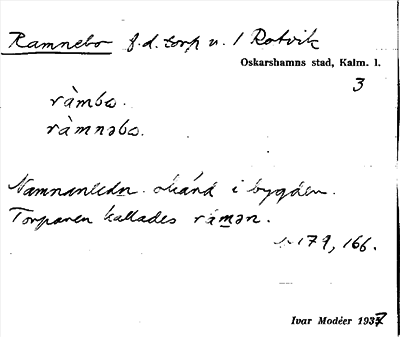 Ramnebo f.d. torp u. / Rotvik
Oskarshamns stad, Kalm. l.
3
ràmbo.
ràmnəbo.
Namnanledn. okänd i bygden.
Torparen kallades rámən.
179, 166.
Ivar Modéer 1937